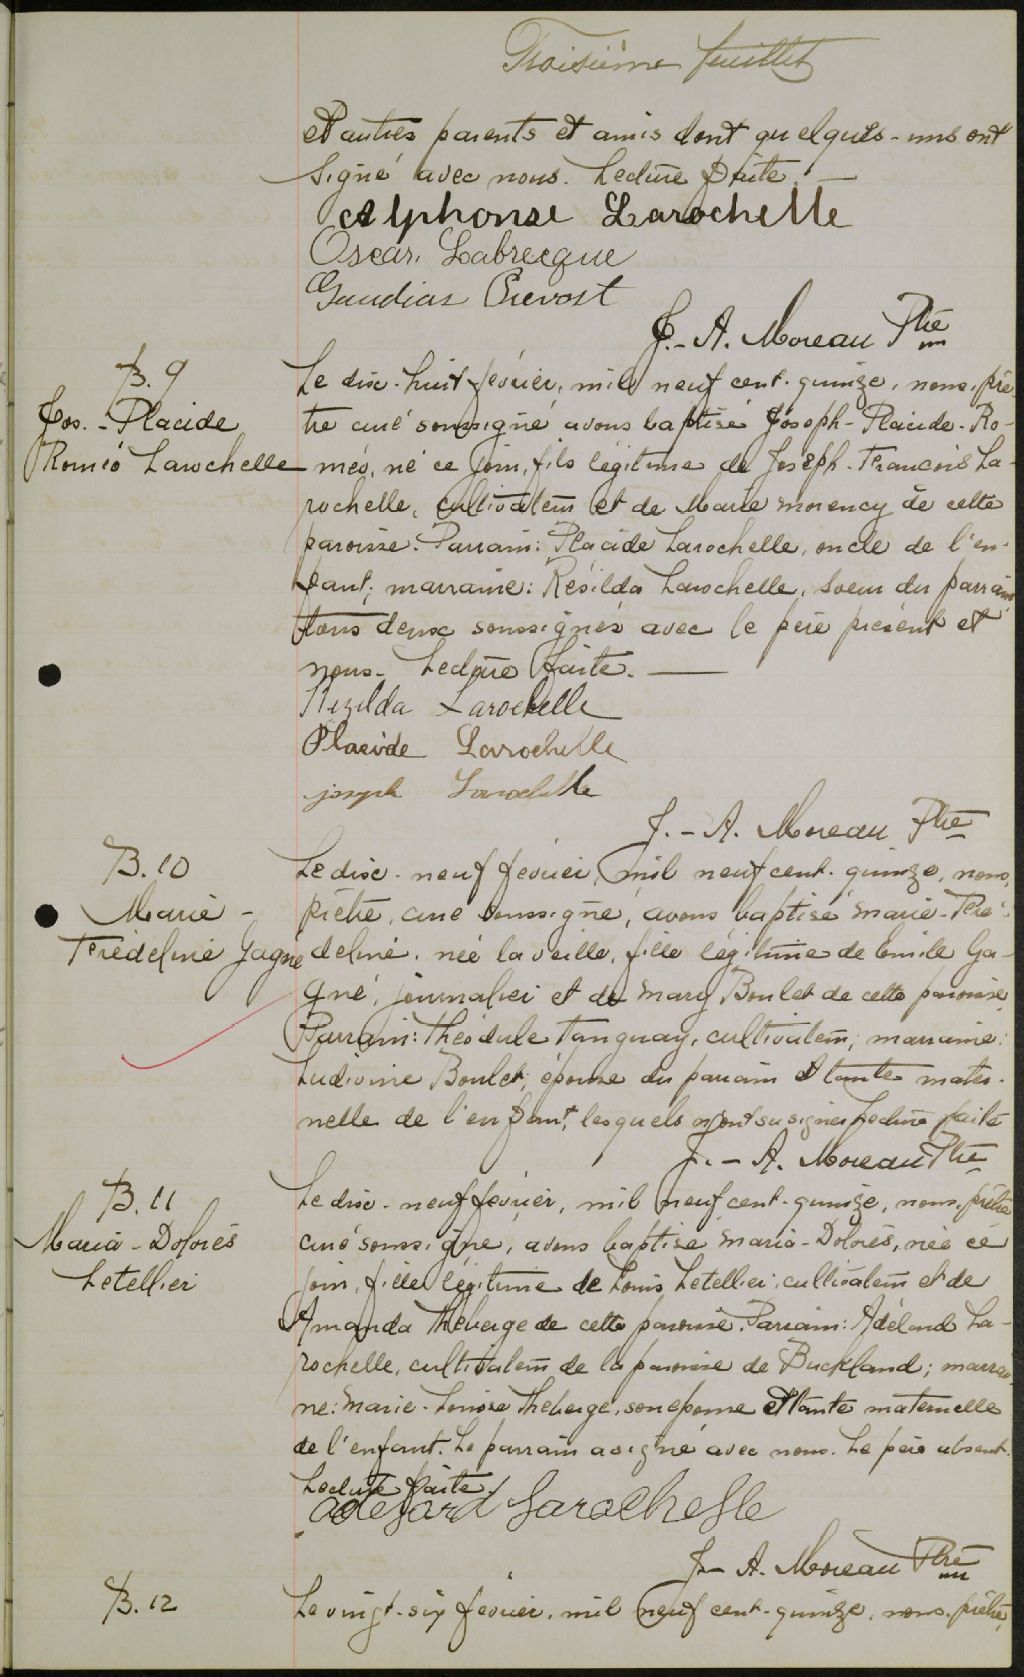 Troisième feuillet
et autres parents et amis dont quelques-uns ont
signé avec nous. Lecture faite. —
Alphonse Larochelle
Oscar Labrecque
Gaudias Prevost
J.-A. Moreau Ptre
B. 9
Jos.-Placide
Roméo Larochelle
Le dix-huit février, mil neuf cent-quinze, nous, prê-
tre curé soussigné avons baptisé Joseph-Placide-Ro-
méo, né ce jour, fils légitime de Joseph-François La-
rochelle, cultivateur et de Marie Morency de cette
paroisse. Parrain: Placide Larochelle, oncle de l'en-
fant; marraine: Résilda Larochelle, soeur du parrain
tous deux soussignés avec le père présent et
nous. Lecture faite. —
Rezilda Larochelle
Placide Larochelle
joseph Larochelle
J.-A. Moreau Ptre
B. 10
Marie-
Frédeline Gagné
Le dix-neuf février, mil neuf cent-quinze, nous,
prêtre, curé soussigné, avons baptisé Marie-Fré-
deline, née la veille, fille légitime de Emile Ga-
gné, journalier et de Mary Boulet de cette paroisse.
Parrain: Théodule Tanguay, cultivateur; marraine:
Ludivine Boulet, épouse du parrain et tante mater-
nelle de l'enfant, lesquels n'ont su signer. Lecture faite
J.-A. Moreau Ptre
B. 11
Maria-Dolorès
Letellier
Le dix-neuf février, mil neuf cent-quinze, nous, prêtre
curé soussigné, avons baptisé Maria-Dolorès, née ce
jour, fille légitime de Louis Letellier, cultivateur et de
Amanda Théberge de cette paroisse. Parrain: Adélard La-
rochelle, cultivateur de la paroisse de Buckland; marrai-
ne: Marie-Louise Théberge, son épouse et tante maternelle
de l'enfant. Le parrain a signé avec nous. Le père absent.
Lecture faite.
Adelard Larochelle
J.-A. Moreau Ptre
B. 12
Le vingt-six février, mil neuf cent-quinze, nous, prêtre,